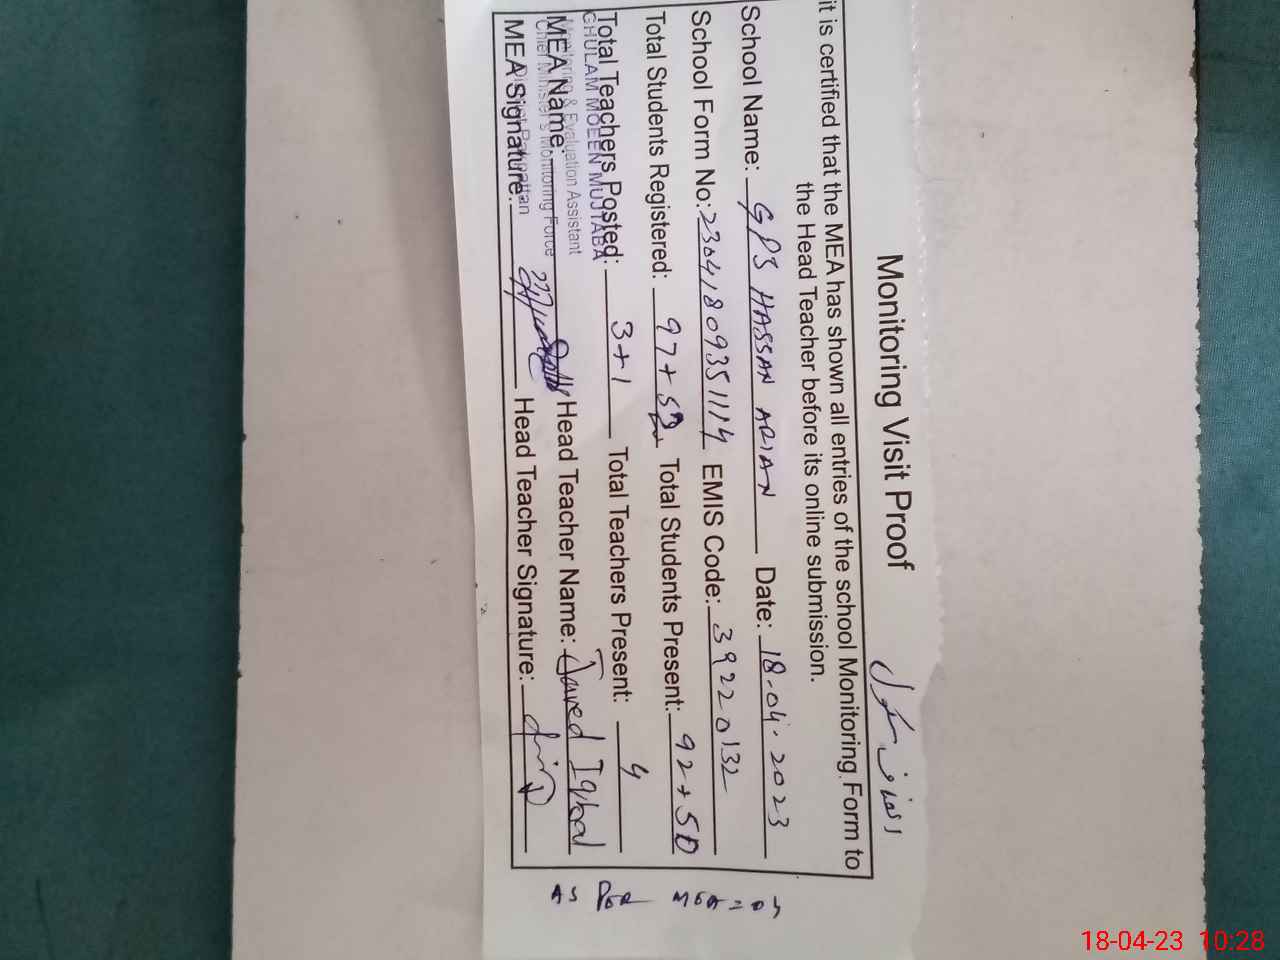 Monitoring Visit Proof
انصاف سکول
it is certified that the MEA has shown all entries of the school Monitoring Form to
the Head Teacher before its online submission.
School Name: GPS HASSAN ARIAN Date: 18-04-2023
School Form No: 230418093511114 EMIS Code: 39220132
Total Students Registered: 97+ Total Students Present: 92+50
Total Teachers Posted: 3+1 Total Teachers Present: 4
GHULAM MOEEN MUJTABA
Monitoring & Evaluation Assistant
MEA Name: Head Teacher Name: Javed Iqbal
Chief Minister's Monitoring Force
District Pakpattan
MEA Signature: Head Teacher Signature:
AS PER MEA = 04
18-04-23 10:28